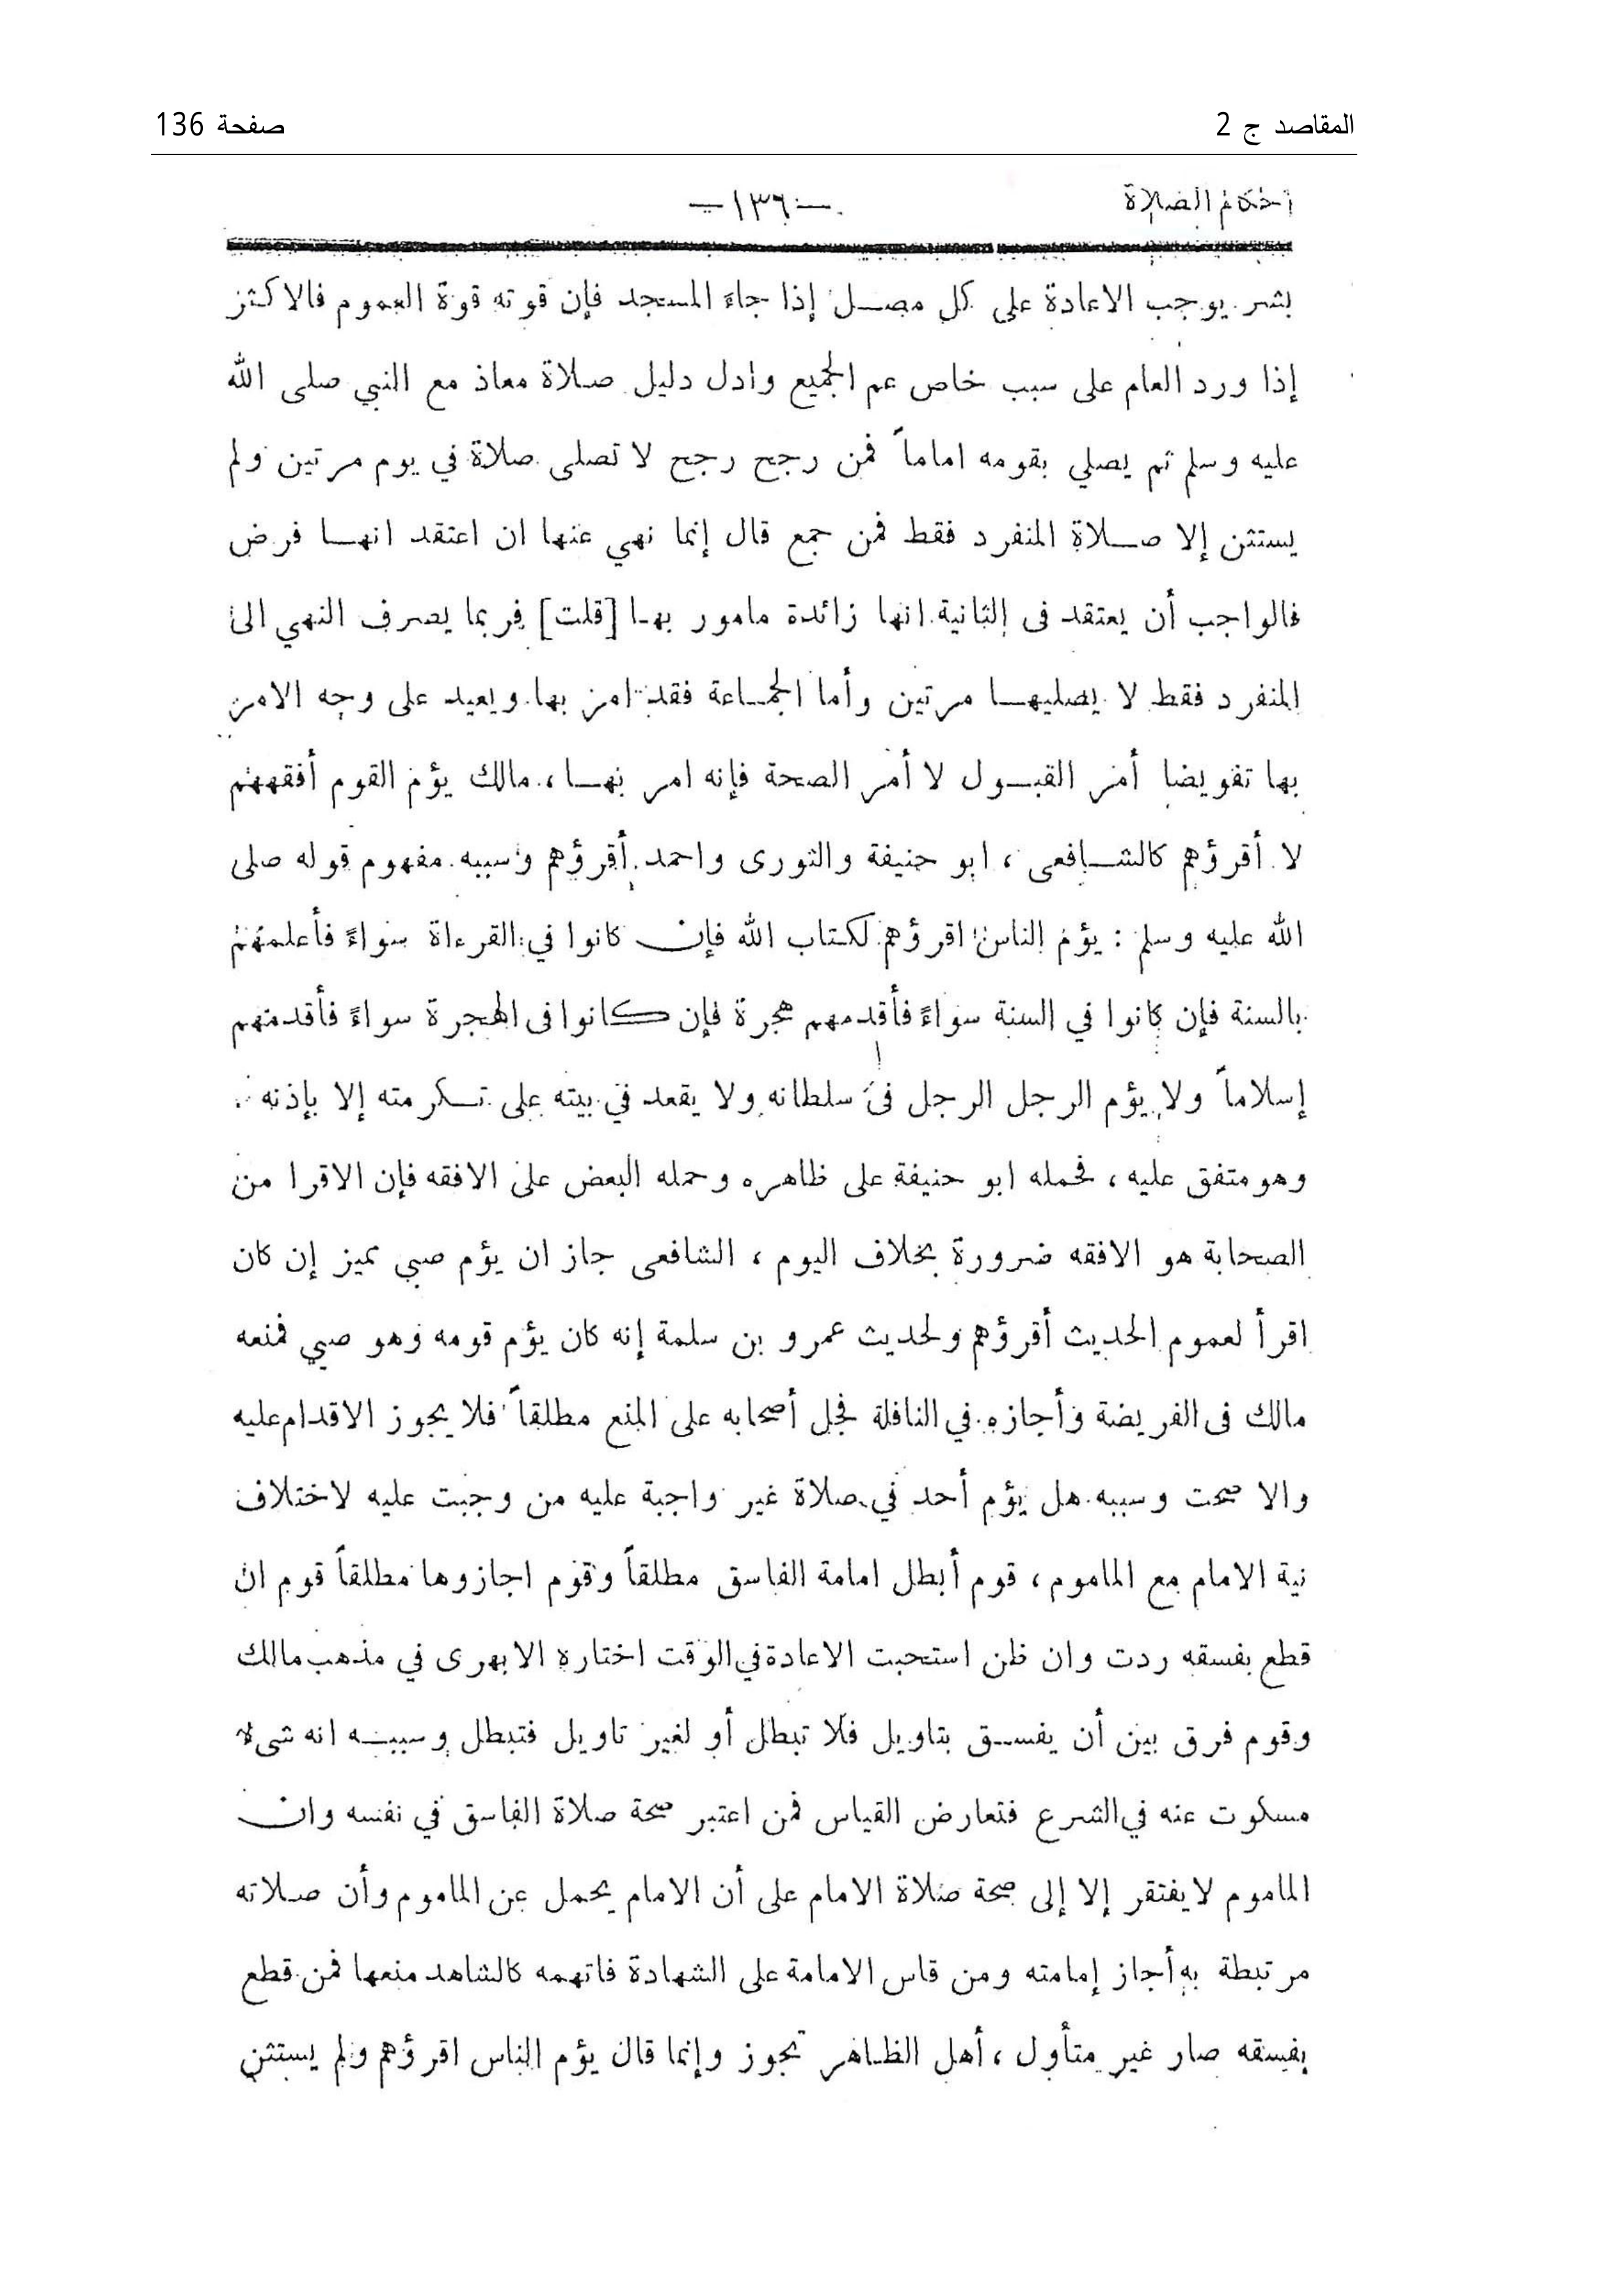 المقاصد ج 2
صفحة 136
أحكام الصلاة
— ١٣٦ —
بشر يوجب الاعادة على كل مصل إذا جاء المسجد فإن قوته قوة العموم فالاكثر
إذا ورد العام على سبب خاص عم الجميع وادل دليل صلاة معاذ مع النبي صلى الله
عليه وسلم ثم يصلي بقومه اماماً فمن رجح رجح لا تصلى صلاة في يوم مرتين ولم
يستثن إلا صلاة المنفرد فقط فمن جمع قال إنما نهي عنها ان اعتقد انها فرض
فالواجب أن يعتقد فى الثانية انها زائدة مامور بها [قلت] فربما يصرف النهي الى
المنفرد فقط لا يصليها مرتين وأما الجماعة فقد امر بها ويعيد على وجه الامر
بها تفويضا أمر القبول لا أمر الصحة فإنه امر بها، مالك يؤم القوم أفقههم
لا أقرؤهم كالشافعى، ابو حنيفة والثورى واحمد أقرؤهم وسببه مفهوم قوله صلى
الله عليه وسلم: يؤم الناس اقرؤهم لكتاب الله فإن كانوا في القرءاة سواءً فأعلمهم
بالسنة فإن كانوا في السنة سواءً فأقدمهم هجرة فإن كانوا فى الهجرة سواءً فأقدمهم
إسلاماً ولا يؤم الرجل الرجل فى سلطانه ولا يقعد في بيته على تكرمته إلا بإذنه.
وهو متفق عليه، فحمله ابو حنيفة على ظاهره وحمله البعض على الافقه فإن الاقرا من
الصحابة هو الافقه ضرورة بخلاف اليوم، الشافعى جاز ان يؤم صبي مميز إن كان
اقرأ لعموم الحديث أقرؤهم ولحديث عمرو بن سلمة إنه كان يؤم قومه وهو صبي فمنعه
مالك فى الفريضة وأجازه في النافلة فجل أصحابه على المنع مطلقاً فلا يجوز الاقدام عليه
والا صحت وسببه هل يؤم أحد في صلاة غير واجبة عليه من وجبت عليه لاختلاف
نية الامام مع الماموم، قوم أبطل امامة الفاسق مطلقاً وقوم اجازوها مطلقاً قوم ان
قطع بفسقه ردت وان ظن استحبت الاعادة في الوقت اختاره الابهرى في مذهب مالك
وقوم فرق بين أن يفسق بتاويل فلا تبطل أو لغير تاويل فتبطل وسببه انه شىء
مسكوت عنه في الشرع فتعارض القياس فمن اعتبر صحة صلاة الفاسق في نفسه وان
الماموم لا يفتقر إلا إلى صحة صلاة الامام على أن الامام يحمل عن الماموم وأن صلاته
مرتبطة به أجاز إمامته ومن قاس الامامة على الشهادة فاتهمه كالشاهد منعها فمن قطع
بفسقه صار غير متأول، أهل الظاهر تجوز وإنما قال يؤم الناس اقرؤهم ولم يستثن